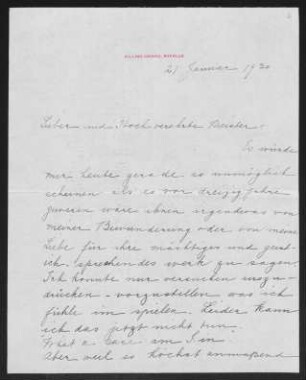 21 Januar 1930
Lieber und Hoch verehrte Meister -
Es würde
mir heute gerade so unmöglich
scheinen als es vor dreizig Jahre
gewesen wäre ihnen irgendetwas von
meiner Bewunderung oder von meine
Liebe für ihre mächtiges und geist-
sprechendes werk zu sagen.
Ich konnte nur versuchen auszu-
drücken - vorzustellen was ich
fühle im spielen. Leider kann
ich das jetzt nicht tun.
im Sin
Aber weil es höchst anmaßend